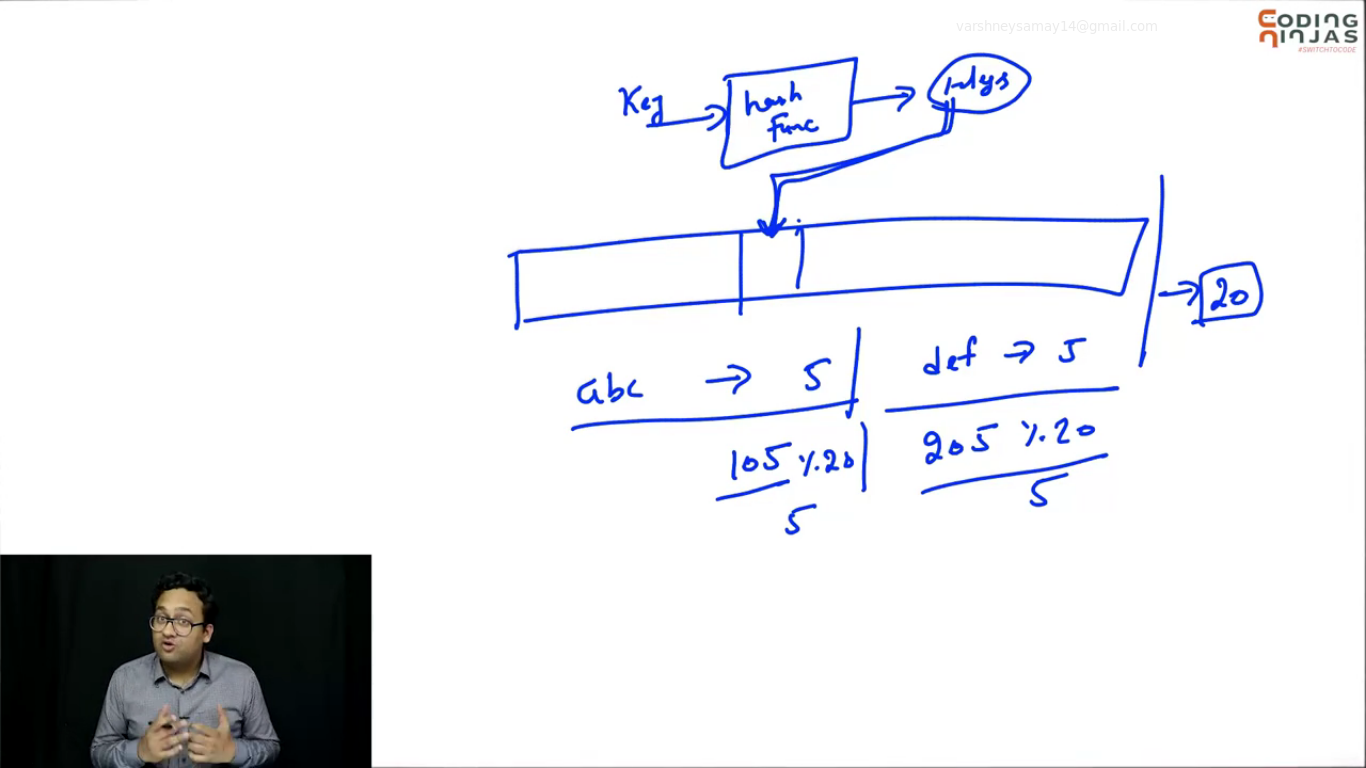 varshneysamay14@gmail.com
CODING
NINJAS
#SWITCHTOCODE
Key
hash
func
20
abc → 5
def → 5
105 %20
5
205 %20
5